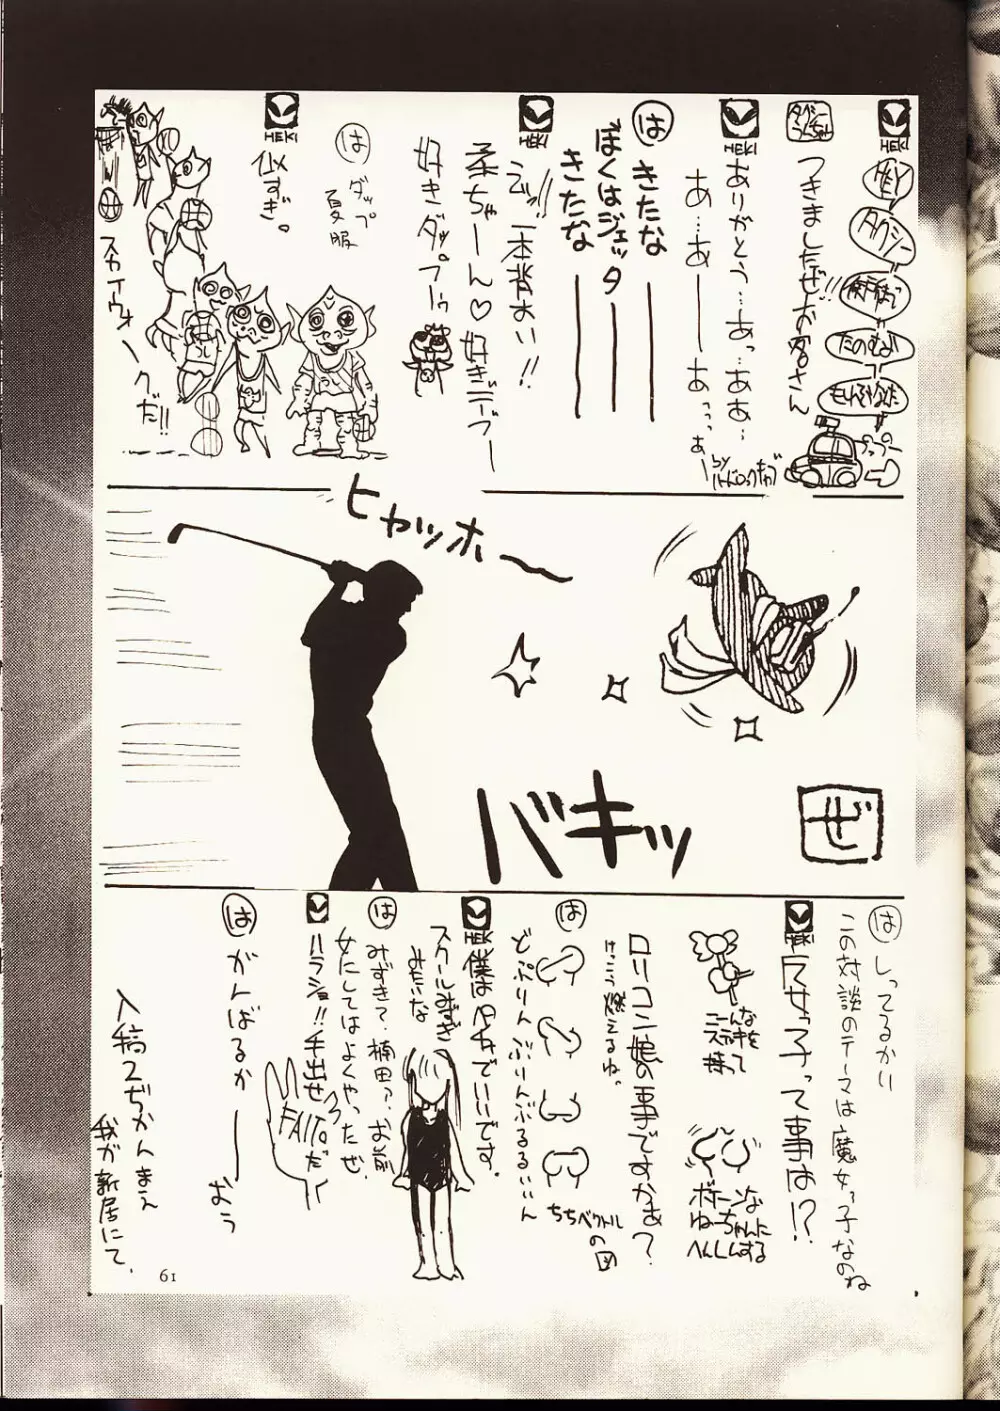 HEKI
HEY
タクシー
たのむよ
タクシーうんちゃん
つきましたぜお客さん!!
HEKI
ありがとう…あっ…ああ…
あ…あ——あっっぁー
は
きたな——
ぼくはジェッタ——
きたな——
HEKI
うっ!!一本背おい!!
柔ちゃーん♡好きデブー
好きダップーゥ
は
ダップ
夏服
HEKI
似すぎ。
スカイウォークだ!!
ヒャッホー
バキッ
ぜ
は
しってるかい
この対談のテーマは魔女っ子なのね
HEKI
魔女っ子って事は!?
こーんな
ステッキを
持って
ボボーンな
ねーちゃんに
へんしんする
ロリコン娘の事ですかあ?
けっこう燃えるね。
は
どっぷりんぶりんぶるるぃぃん
ちちベクトルの図
HEKI
僕はペチャでいいです。
スクールみずぎ
みたいな
は
みずきて、楠田ァ、お前
女にしてはよくやったぜ、
ハラショ!!手出せ
FAITOだ
は
がんばるかーーおう
入稿2じかんまえ
我が新居にて、
61